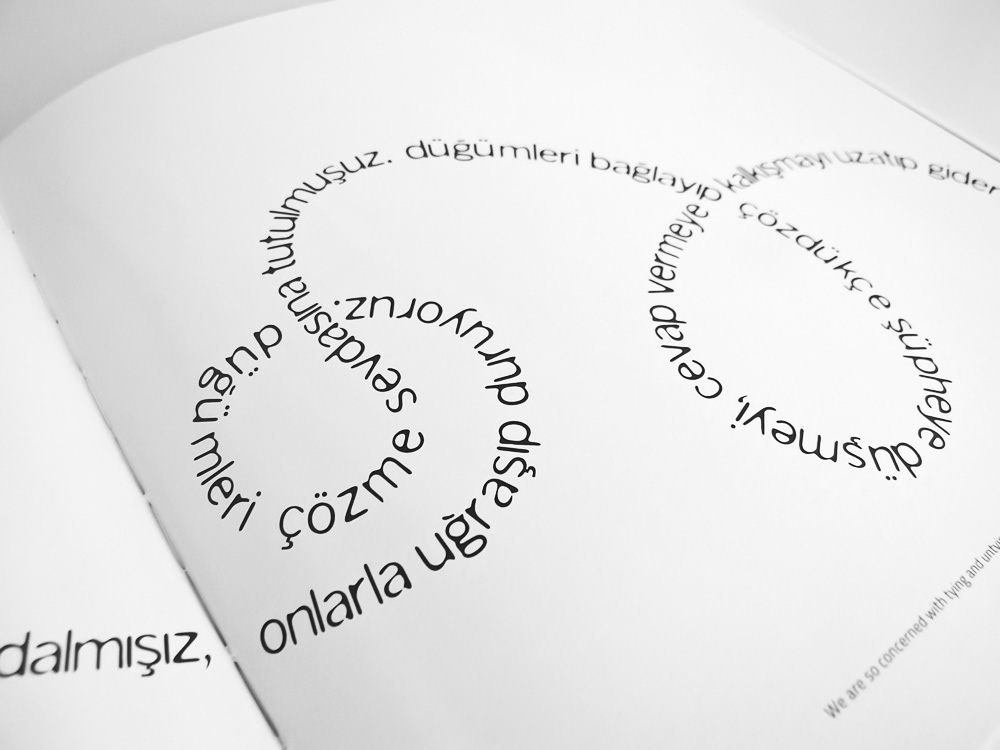 dalmışız,
onlarla uğraşıp duruyoruz.
düğümleri çözme sevdasına tutulmuşuz.
düğümleri bağlayıp çözdükçe şüpheye düşmeyi, cevap vermeye kalkışmayı uzatıp gider
We are so concerned with tying and